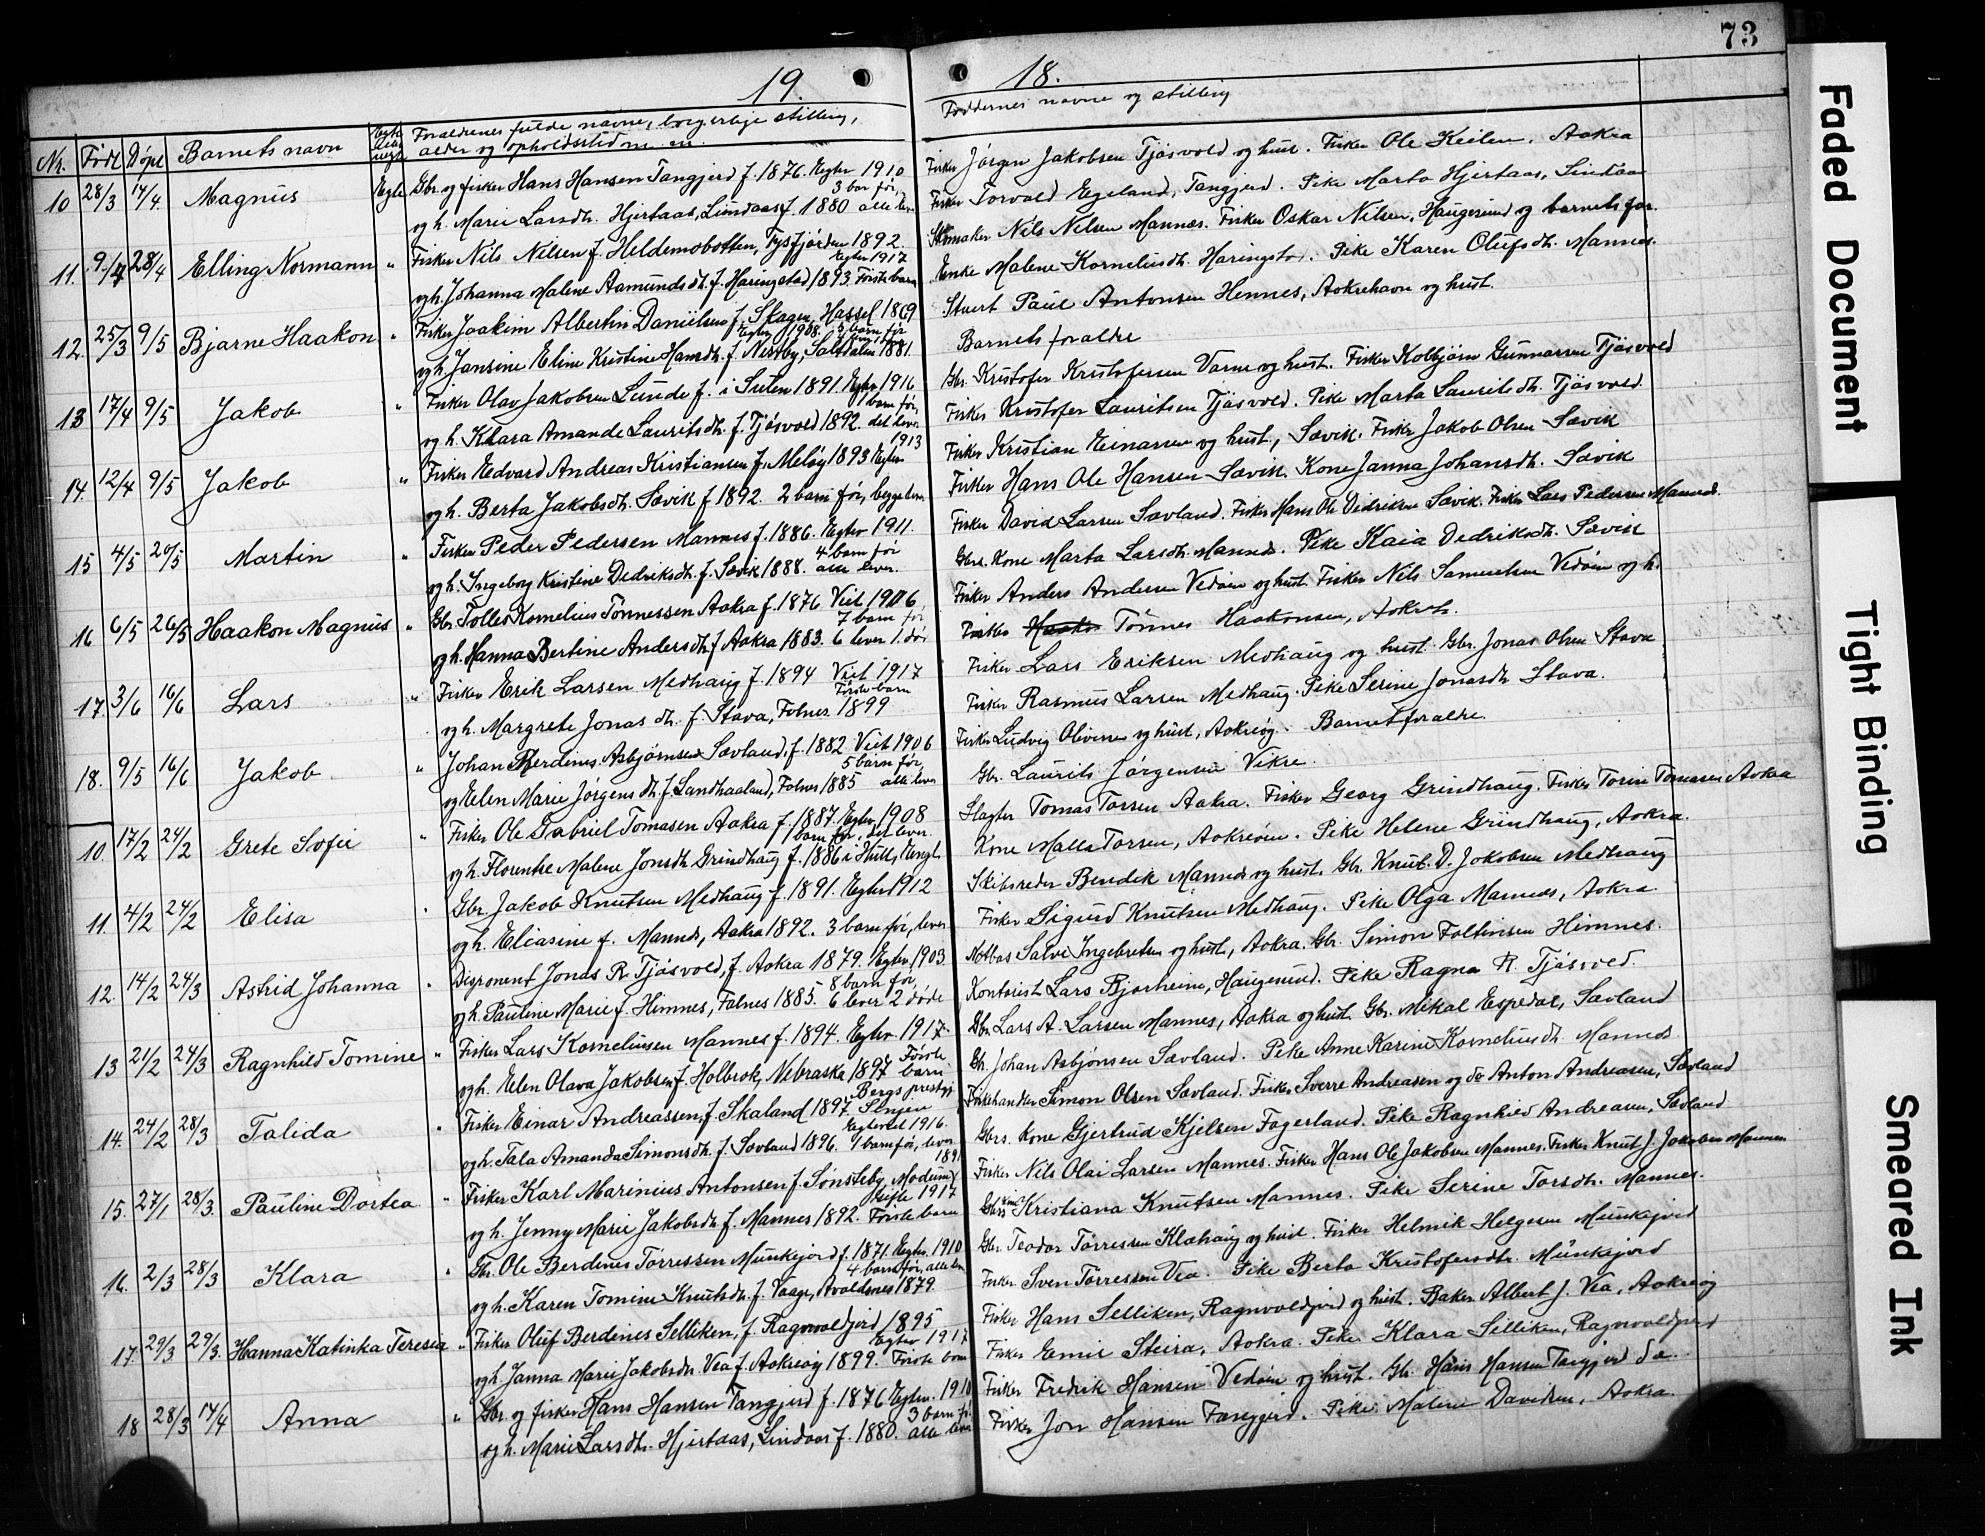 73
19.
18.
Nr.
Født
Døpt
Barnets navn
Foraldrenes fulde navne, borgerlige stilling,
alder og opholdssted m. m.
Faddernes navne og stilling
10 28/3 14/4. Magnus Egte Gbr. og fisker Hans Hansen Tangjerd f. 1876. Egtev 1910
3 bar før,
og h. Marie Larsdh. Hjertaas, Lindaas f. 1880 alle lev.
Fisker Jørgen Jakobsen Tjøsvold og hust. Fisker Ole Keilen, Aakra
Fisker Torvald Egeland, Tangjerd. Pike Marta Hjertaas, Lindaas
11. 9/4 28/4 Elling Normann " Fisker Nils Nilsen f. Heldemobotten, Tysfjorden 1892.
Egtev 1917
og h. Johanna Malene Aamundsdh. f. Haringstad 1893 Første barn
Skomaker Nils Nilsen Mannes. Fisker Oskar Nilsen, Haugesund og barnets far.
Enke Malene Korneliusdh. Haringstad. Pike Karen Olufsdh. Mannes.
12. 25/3 9/5 Bjarne Haakon " Fisker Joakim Albertin Danielsen f. Skagen, Hassel 1869
Egtev 1908. 3 barn før
og h. Jansine Eline Kristine Hansdh. f. Nestby, Saltdalen 1881.
Stuert Paul Antonsen Hennes, Aakrehavn og hust.
Barnets foraldre
13 17/4 9/5 Jakob " Fisker Olav Jakobsen Lunde f. i Sulen 1891. Egtev 1916
1 barn før,
og h. Klara Amande Lauritsdh. f. Tjøsvold 1892. det lever.
Gbr. Kristofer Kristofersen Varne og hust. Fisker Kolbjørn Gunnarsen Tjøsvold
Fisker Kristofer Lauritsen Tjøsvold. Pike Marta Lauritsdh. Tjøsvold.
14. 12/4 9/5 Jakob " 1913
Fisker Edvard Andreas Kristiansen f. Meløy 1893 Egtev
og h. Berta Jakobsdh. Sævik f 1892. 2 barn før, begge lever.
Fisker Kristian Einarsen og hust, Sævik. Fisker Jakob Olsen Sævik
Fisker Hans Ole Hansen Sævik. Kone Janna Johansdh. Sævik
15 4/5 20/5 Martin " Fisker Peder Pedersen Mannes f. 1886. Egtev 1911.
4 barn før
og h. Ingeborg Kristine Dedriksdh. f. Sævik 1888. alle lever.
Fisker David Larsen Sævland. Fisker Hans Ole Didriksen Sævik. Fisker Lars Pedersen Mannes.
Gbrs. Kone Marta Larsdh. Mannes. Pike Kaia Dedriksdh. Sævik
16 6/5 26/5 Haakon Magnus " Gbr. Tolles Kornelius Tønnessen Aakra f. 1876 Viet 1906
7 barn før
og h. Hanna Bertine Andersdh. f Aakra 1883. 6 lever 1. død
Fisker Anders Andersen Vedøen og hust. Fisker Nils Samuelsen Vedøen og h.
Fisker Haakon Tønnes Haakonsen, Aakreh.
17. 3/6 16/6 Lars " Fisker Erik Larsen Medhaug f. 1894 Viet 1917
Første barn
og h. Margrete Jonasdh. f. Stava, Falnes 1899
Fisker Lars Eriksen Medhaug og hust. Gbr. Jonas Olsen Stava
Fisker Rasmus Larsen Medhaug. Pike Serine Jonasdh Stava.
18. 9/5 16/6 Jakob " Johan Berdines Asbjørnsen Sævland, f. 1882 Viet 1906
5 barn før,
og Elen Marie Jørgensdh. f. Landhaaland, Falnes 1885 alle lever
Fisker Ludvig Oliversen og hust, Aakreøy. Barnets foraldre.
Gbr. Laurits Jørgensen Vikre.
10. 17/2 24/2 Grete Sofie " Fisker Ole Gabriel Tomasen Aakra f. 1887. Egtev. 1908
1 barn før, det lever.
og h. Florentse Malene Jonsdh. Grindhaug f. 1886 i Hull, Engl.
Slagter Tomas Torsen Aakra. Fisker Georg Grindhaug. Fisker Torin Tomasen Aakra
Kone Malla Torsen, Aakreøen. Pike Helene Grindhaug, Aakra.
11. 4/2 24/2 Elisa " Gbr. Jakob Knutsen Medhaug f. 1891. Egtev 1912
og h. Eliasine f. Mannes, Aakra 1892. 3 barn før, lever
Skibsreder Bendik Mannes og hust. Gbr. Knut D. Jakobsen Medhaug
Fisker Sigurd Knutsen Medhaug. Pike Olga Mannes, Aakra
12. 14/2 24/3 Astrid Johanna " Disponent Jonas R. Tjøsvold, f. Aakra 1879. Egtev. 1903.
8 barn før,
og h. Pauline Marie f. Himnes, Falnes 1885. 6 lever 2 døde
Notbas Salve Ingebretsen og hust, Aakra. Gbr. Simon Faltinsen Himnes.
Kontorist Lars Bjorheim, Haugesund. Pike Ragna R. Tjøsvold.
13 21/2 24/3 Ragnhild Tomine " Fisker Lars Korneliussen Mannes f. 1894. Egtev. 1917.
Første
og h. Elen Olava Jakobsen f. Holbrok, Nebraska 1897 barn
Gbr. Lars A. Larsen Mannes, Aakra og hust. Gbr. Mikal Espedal, Sævland
Gbr. Johan Asbjørnsen Sævland. Pike Anne Karine Korneliusdh. Mannes
14. 24/2 28/3 Talida " Bergs prestgj
Fisker Einar Andreassen f. Skaland 1897 Senjen
Egteviet 1916.
og h. Tala Amanda Simonsdh. f. Sævland 1896. 1 barn før, lever
Fiskehandler Simon Olsen Sævland. Fisker Sverre Andreasen og do Anton Andreasen, Sævland
Gbrs. kone Gjertrud Kjelsen Fagerland. Pike Ragnhild Andreasen, Sævland
15. 27/1 28/3. Pauline Dortea " 1891
Fisker Karl Marinius Antonsen f. Sønsteby, Modum
Gifte 1917
og h. Jenny Marie Jakobsdh. f. Mannes 1892. Første barn
Fisker Nils Olai Larsen Mannes. Fisker Hans Ole Jakobsen Mannes. Fisker Knut J. Jakobsen Mannes
Gbrs Kone Kristiana Knutsen Mannes. Pike Serine Torsdh. Mannes.
16. 2/3 28/3 Klara " Gbr. Ole Berdines Tørressen Munkejord f. 1871. Egtev. 1910
4 barn før, alle lever
og h. Karen Tomine Knutsdh. f. Vaage, Avaldsnes 1879.
Gbr. Teodor Tørressen Klæhaug og hust. Fisker Helmik Helgesen Munkejord
Fisker Sven Tørressen Vea. Pike Berta Kristofersdh. Munkejord
17. 29/3 29/3. Hanna Katinka Teresea " Fisker Oluf Berdines Selliken, f. Ragnvaldjord 1895
Egtev 1917
og h. Janna Marie Jakobsdh. Vea f. Aakreøy 1899. Første barn
Fisker Hans Selliken, Ragnvaldjord og hust. Baker Albert J. Vea, Aakreøy
Fisker Emil Steira, Aakra. Pike Klara Selliken, Ragnvaldjord
18 28/3 14/4 Anna " Gbr. og fisker Hans Hansen Tangjerd f. 1876 Egtev. 1910
3 barn før
og h. Marie Larsdh. Hjertaas, Lindaas f. 1880. alle lever
Fisker Fredrik Hansen Vedøen og hust. Gbr. Hans Hansen Tangjerd do.
Fisker Jon Hansen Tangjerd. Pike Malene Davidsen, Aakra.
Faded Document
Tight Binding
Smeared Ink